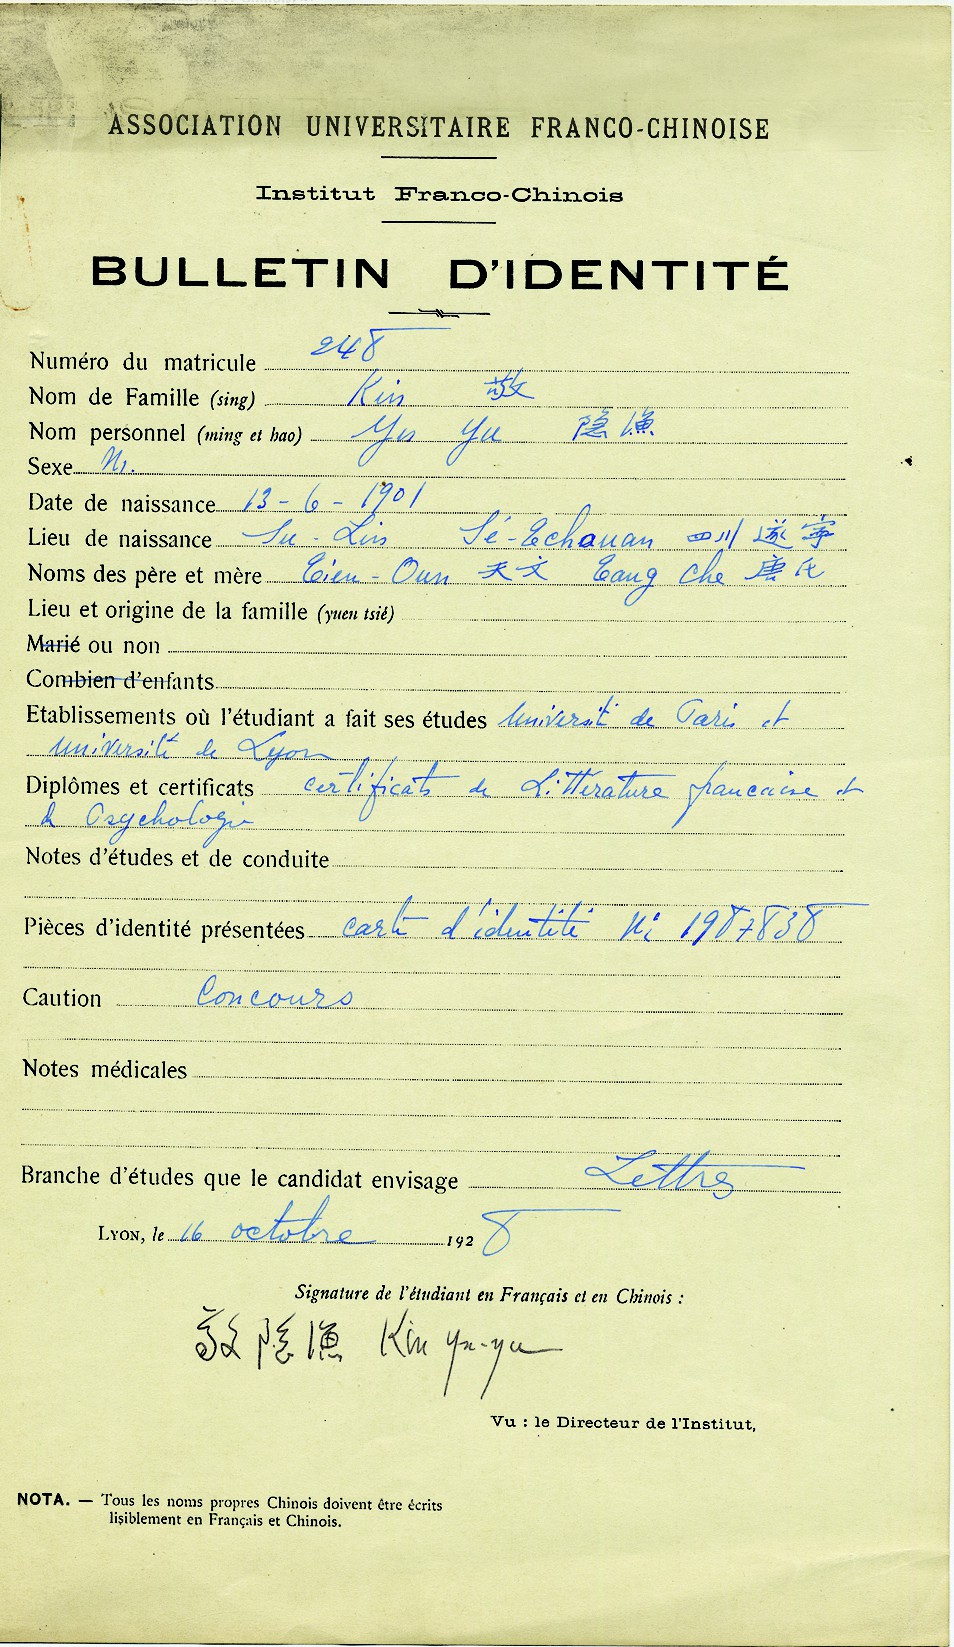 ASSOCIATION UNIVERSITAIRE FRANCO-CHINOISE
Institut Franco-Chinois
BULLETIN D'IDENTITÉ
Numéro du matricule 248
Nom de Famille (sing) Kin 敬
Nom personnel (ming et hao) Yn Yu 隐漁
Sexe M.
Date de naissance 13-6-1901
Lieu de naissance Su-Lin Sé-Tchouan 四川 遂寧
Noms des père et mère Tien-Oun 天文 Tang Che 唐氏
Lieu et origine de la famille (yuen tsié)
Marié ou non
Combien d'enfants
Etablissements où l'étudiant a fait ses études Université de Paris et
Université de Lyon
Diplômes et certificats certificats de Littérature française et
de Psychologie
Notes d'études et de conduite
Pièces d'identité présentées carte d'identité No 1987838
Caution Concours
Notes médicales
Branche d'études que le candidat envisage Lettres
LYON, le 16 octobre 1928
Signature de l'étudiant en Français et en Chinois :
敬隐漁 Kin Yn-yu
Vu : le Directeur de l'Institut,
NOTA. — Tous les noms propres Chinois doivent être écrits
lisiblement en Français et Chinois.